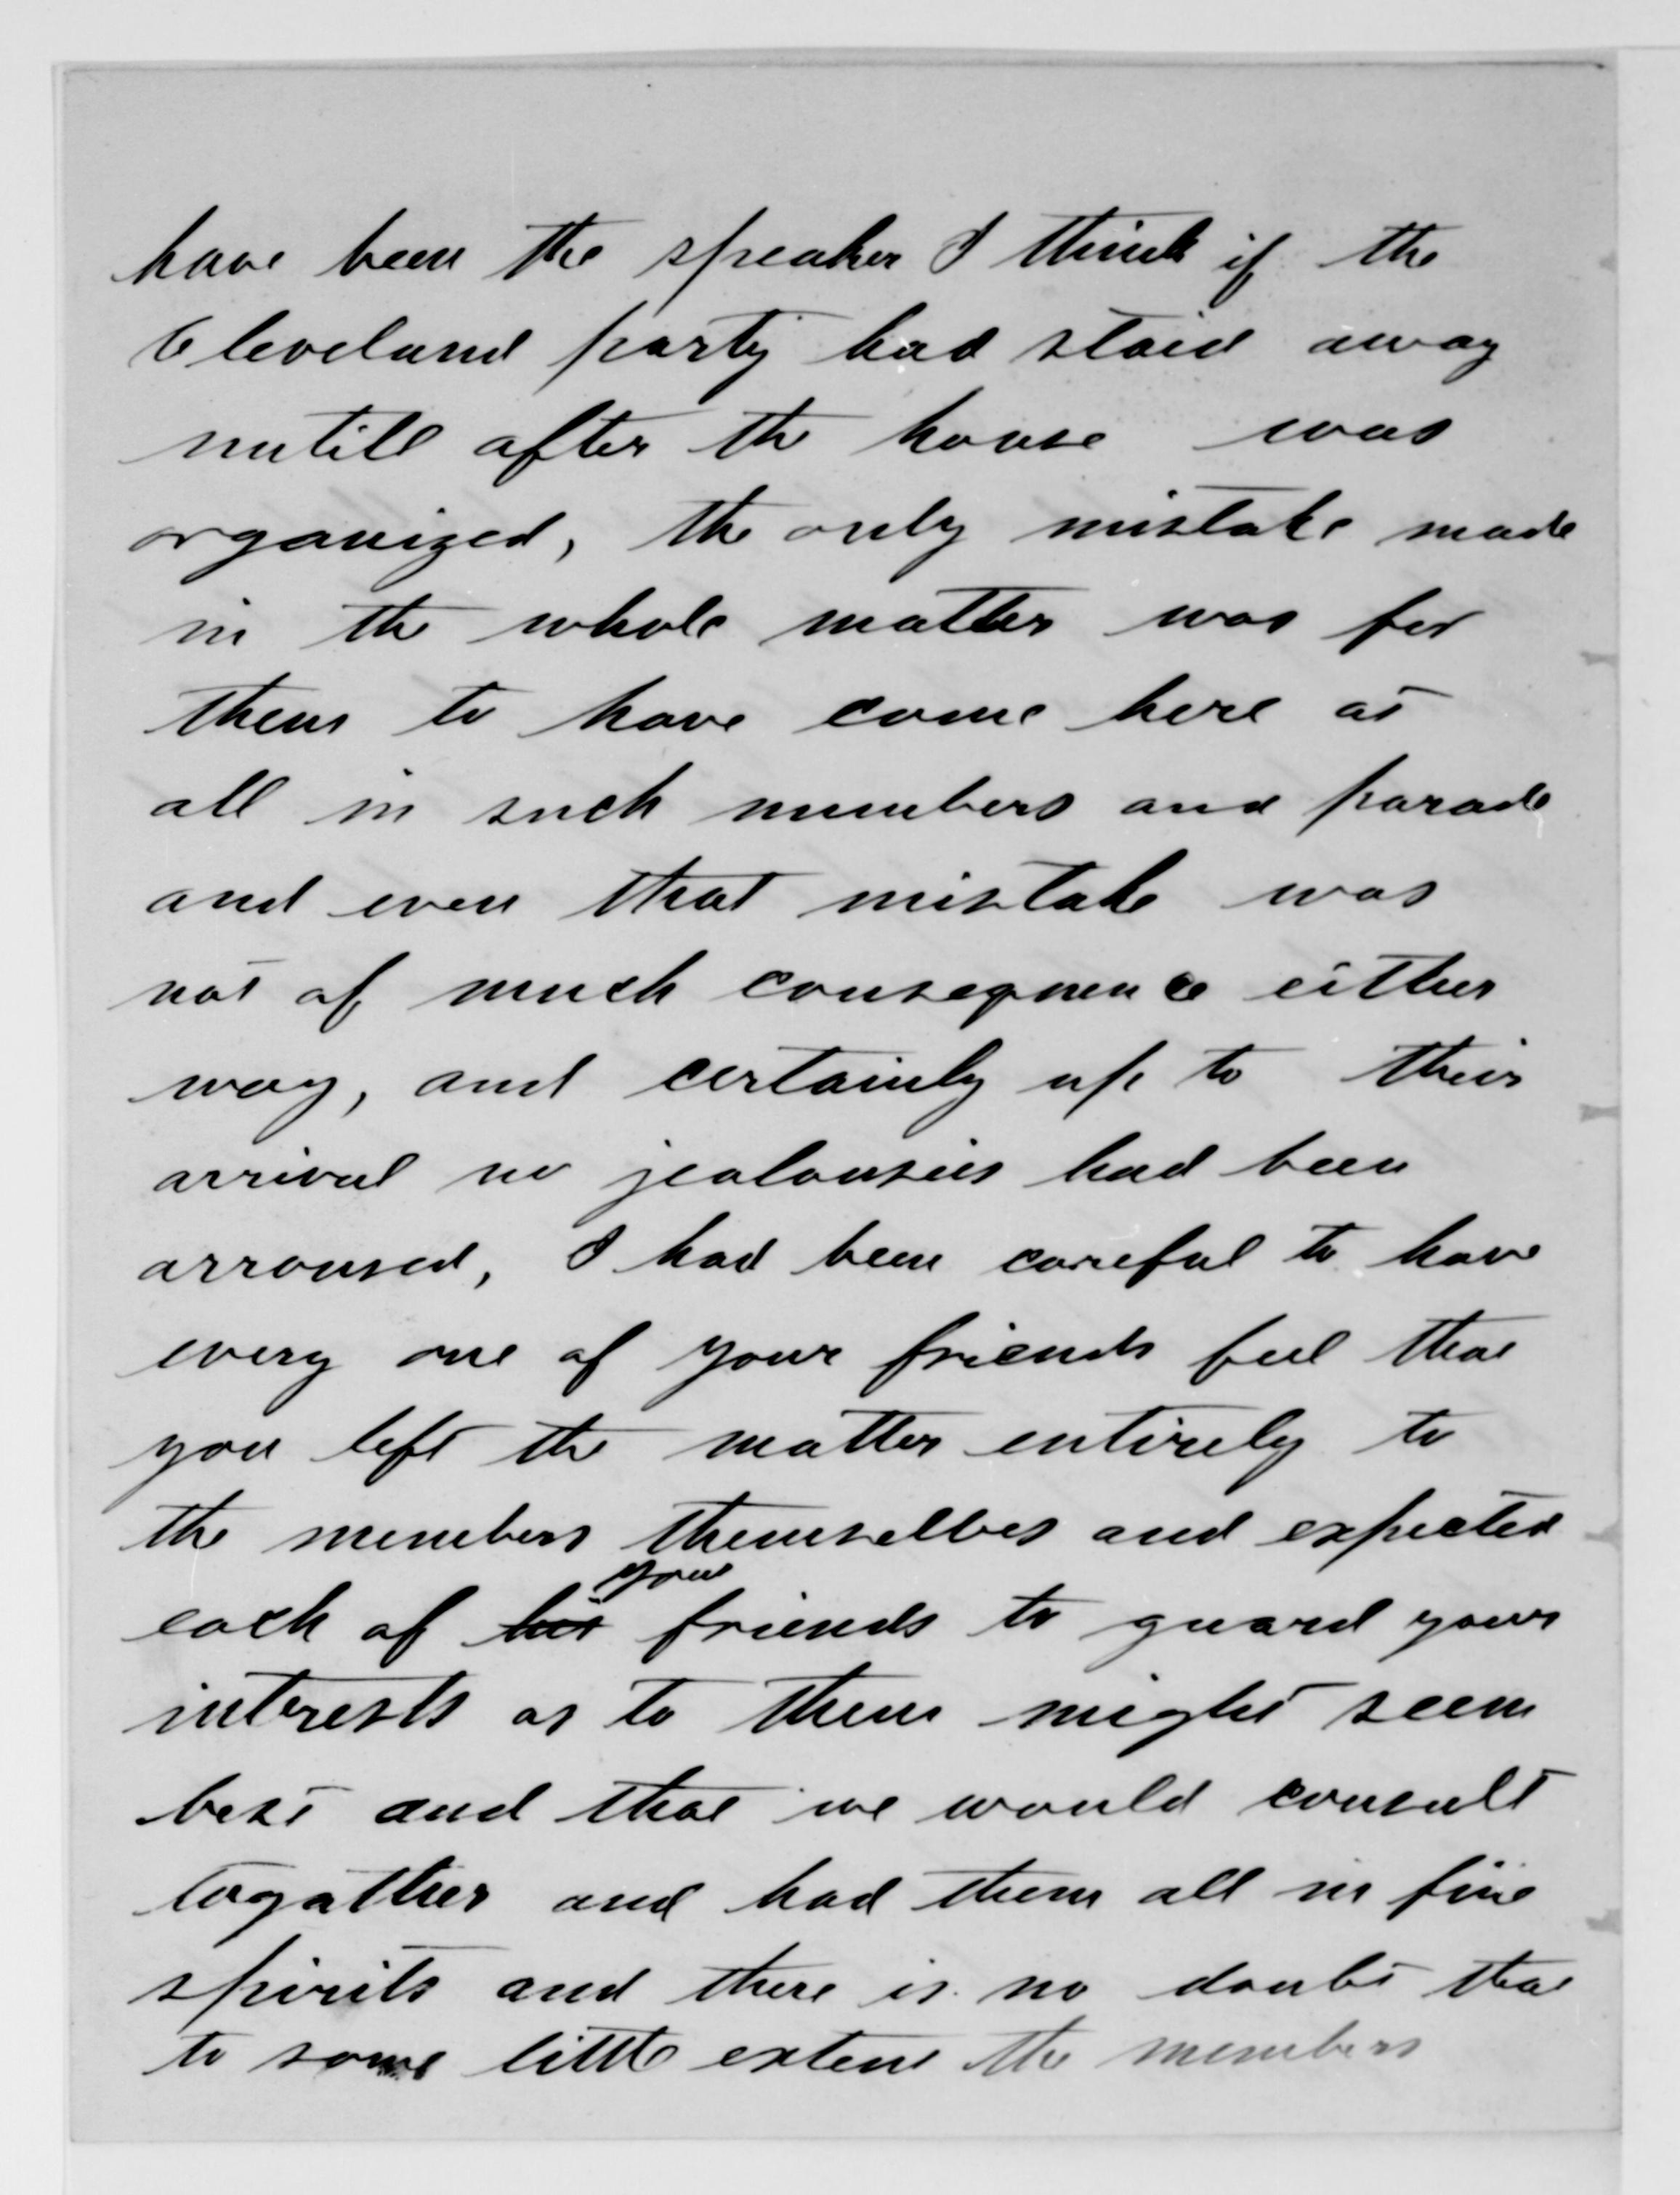 have been the speaker I think if the
Cleveland party had staid away
untill after the house was
organized, the only mistake made
in the whole matter was for
them to have come here at
all in such numbers and parade
and even that mistake was
not of much consequence either
way, and certainly up to their
arrival no jealousies had been
arroused, I had been careful to have
every one of your friends feel that
you left the matter entirely to
the members themselves and expected
your
each of his friends to guard your
interests as to them might seem
best and that we would consult
togather and had them all in fine
spirits and there is no doubt that
to some little extent the members